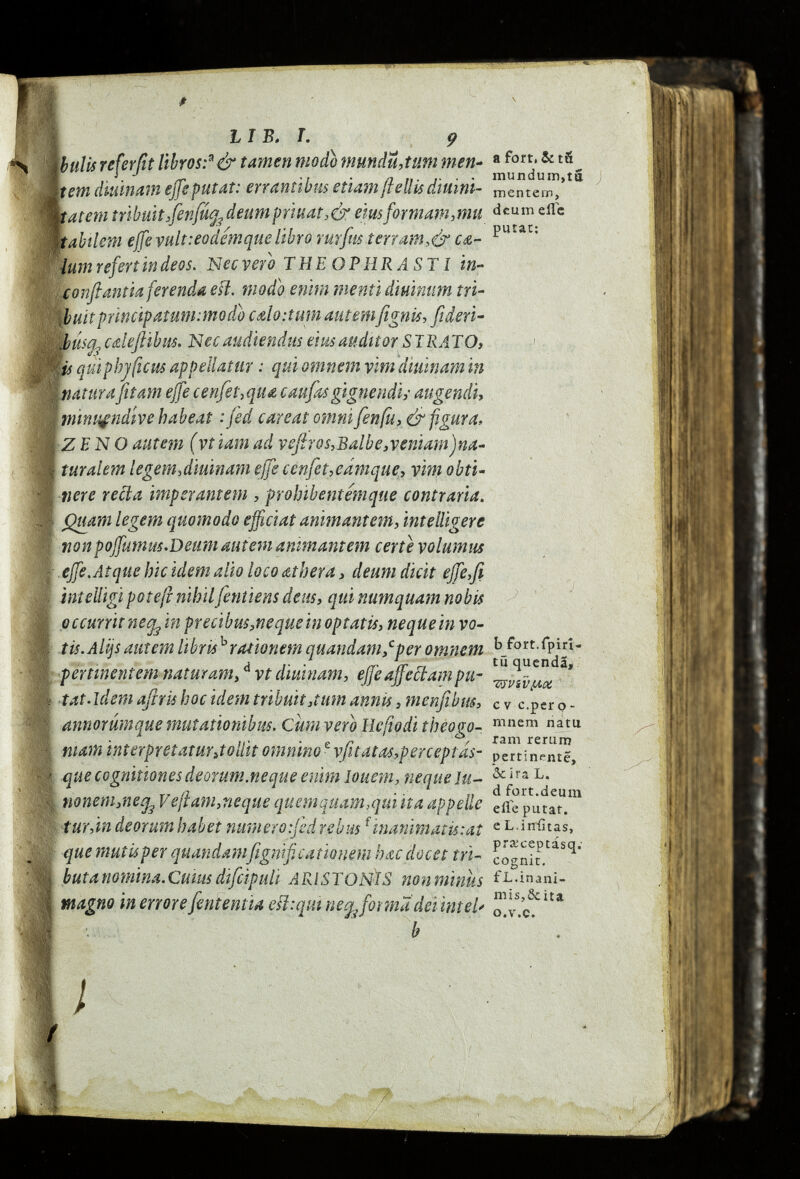 LIB. I. 9
bulis refersit libros:ª & tamen modò mundū,tum men-
tem diuinam esse putat: errantibus etiam stellis diuini-
tatem tribuit,sensúq; deum priuat,& eius formam,mu
tabilem esse vult:eodémque libro rursus terram,& cæ-
lum refert in deos. Nec verò THEOPHRASTI in-
constantia ferenda est. modò enim menti diuinum tri-
buit principatum:modò cælo:tum autem signis, sideri-
búsq; cælestibus. Nec audiendus eius auditor STRATO,
is qui physicus appellatur : qui omnem vim diuinam in
natura sitam esse censet,quæ causas gignendi, augendi,
minuendíve habeat : sed careat omni sensu, & figura.
ZENO autem (vt iam ad vestros,Balbe,veniam)na-
turalem legem,diuinam esse censet,eámque, vim obti-
nere recta imperantem , prohibentémque contraria.
Quam legem quomodo efficiat animantem, intelligere
non possumus.Deum autem animantem certè volumus
esse.Atque hic idem alio loco æthera , deum dicit esse,si
intelligi potest nihil sentiens deus, qui numquam nobis
occurrit neq; in precibus,neque in optatis, neque in vo-
tis.Alijs autem libris ᵇrationem quandam,ᶜper omnem
pertinentem naturam, ᵈ vt diuinam, esse affectam pu-
tat.Idem astris hoc idem tribuit,tum annis , mensibus,
annorúmque mutationibus. Cùm verò Hesiodi theogo-
niam interpretatur,tollit omnino ᵉ vsitatas,perceptás-
que cognitiones deorum.neque enim Iouem, neque Iu-
nonem,neq; Vestam,neque quemquam,qui ita appelle
tur,in deorum habet numero:sed rebus ᶠinanimatis:at
que mutis per quandam significationem hæc docet tri-
buta nomina.Cuius discipuli ARISTONIS non minùs
magno in errore sententia est:qui neq; formā dei intel-
b
a fort. & tū
mundum,tū
mentem,
deum esse
putat:
b fort.spiri-
tū quendā,
πνεῦμα
c v c.pero-
mnem natu
ram rerum
pertinentē,
& ira L.
d fort.deum
esse putat.
e L.insitas,
præceptásq;
cognit.
f L.inani-
mis,& ita
o.v.c.